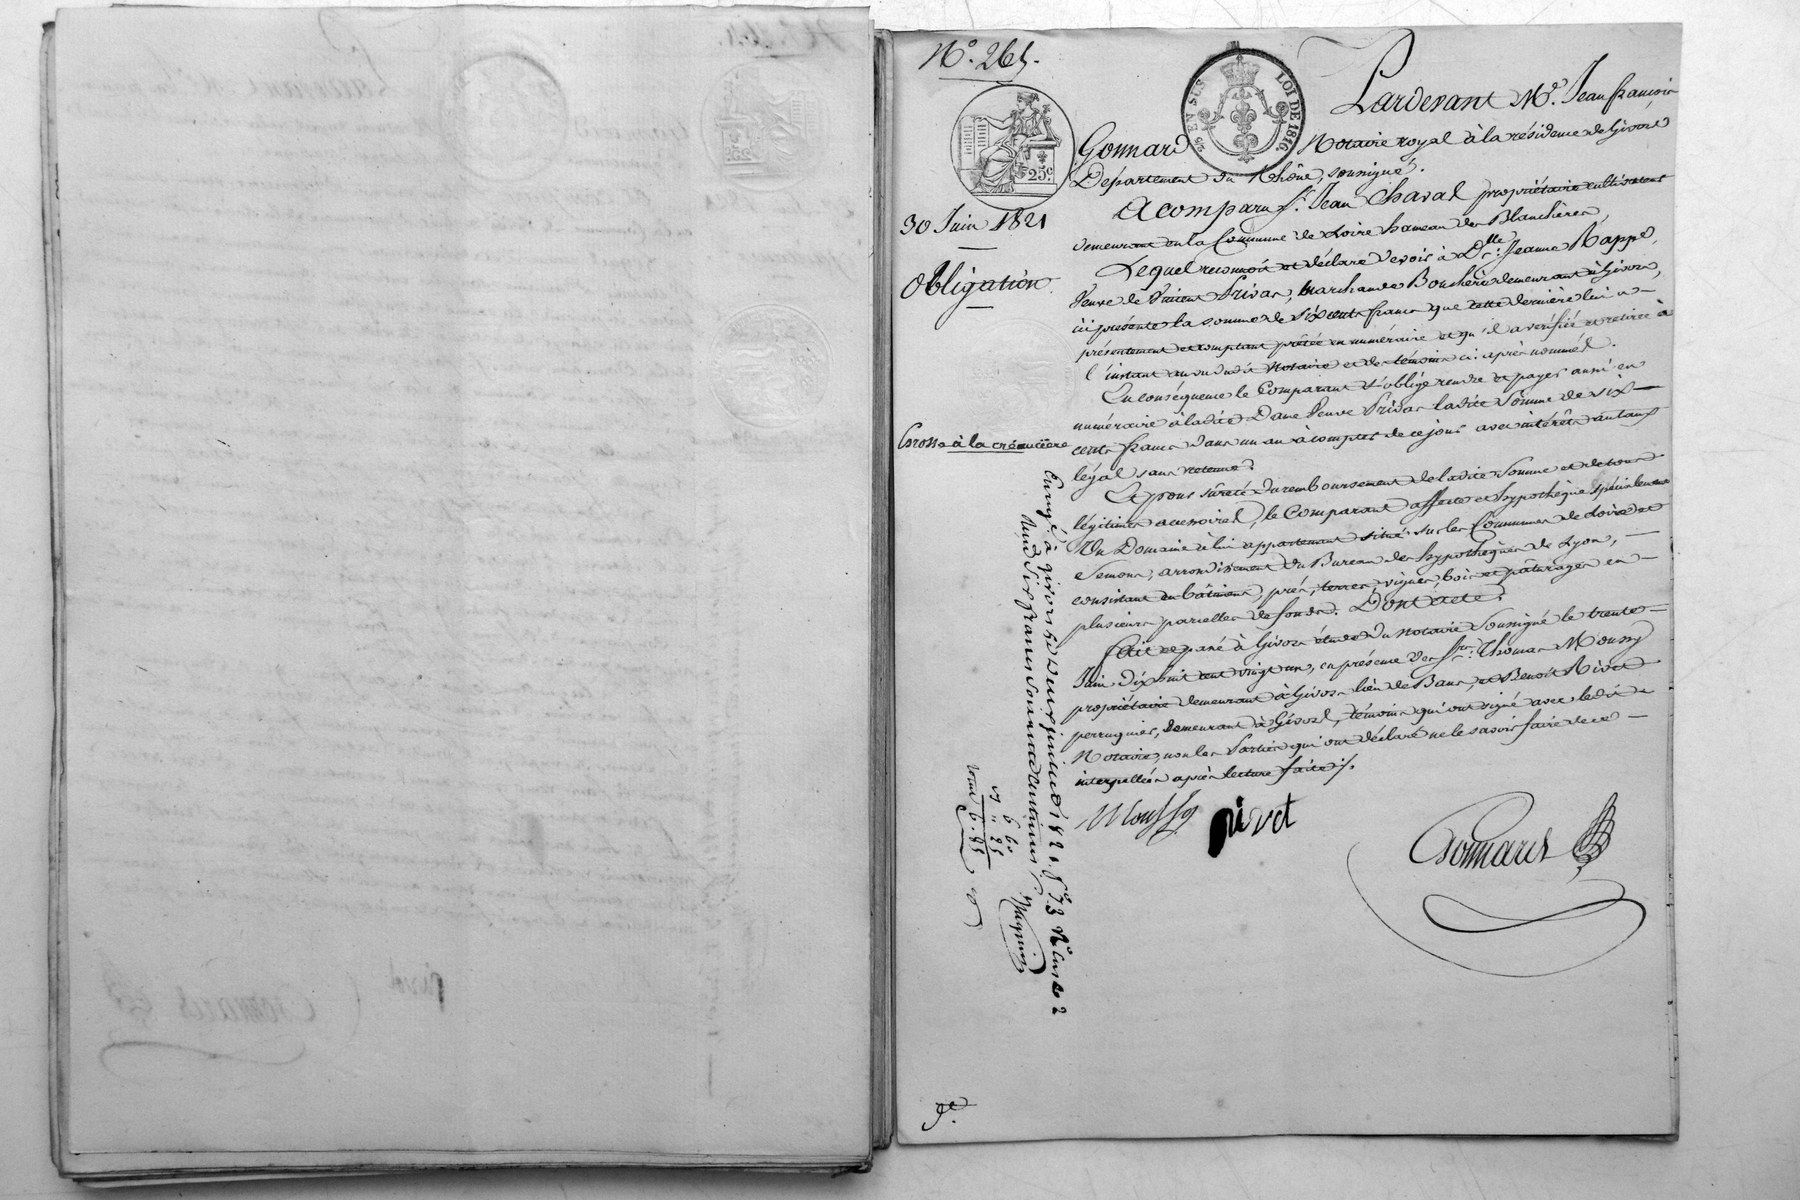 N.º 265.
EN SUS
LOI DE 1816.
25c
Pardevant M.e Jean françois
Gonnard Notaire royal à la résidence de Givors
Département du Rhône, soussigné.
30 Juin 1821
Obligation
A comparu S.r Jean Chaval propriétaire cultivateur
demeurant en la Commune de Loire hameau des Blanchières,
Lequel reconnoit et déclare devoir à D.lle Jeanne Rappe,
Veuve de Vincent Privas, Marchande Bouchère demeurant à Givors,
ici présente la somme de six cents francs que cette dernière lui a
présentement et comptant prêtée en numéraire et qu'il a vérifiée et retirée à
l'instant au vu dudit Notaire et des témoins ci-après nommés.
En conséquence le Comparant s'oblige rendre et payer aussi en
numéraire à ladite Dame Veuve Privas ladite Somme de six
cents francs dans un an à compter de ce jour avec intérêts au taux
légal sans retenue.
Grosse à la créancière
Et pour sûreté du remboursement de ladite Somme et de tous
légitimes accessoires, le Comparant affecte et hypothèque spécialement
Un Domaine à lui appartenant situé sur les Communes de Loire et
Semons, arrondissement du Bureau des hypothèques de Lyon,
consistant en bâtimens, prés, terres, vignes, bois et pâturages en
plusieurs parcelles de fonds. Dont acte.
Fait et passé à Givors étude du Notaire Soussigné le trente
Juin dix huit cent vingt un, en présence des S.rs Thomas Moussy
propriétaire demeurant à Givors lieu de Bans, et Benoit Rivet
perruquier, demeurant à Givors, témoins qui ont signé avec ledit
Notaire, non les Parties qui ont déclaré ne le savoir faire de ce
interpellées après lecture faite.
Moussy
Rivet
Gonnard
Enreg.é à givors le deux juillet 1821. f.o 73 N.o Case 2
Reçu Six francs Soixante Centimes
6 60
" 25
6.85